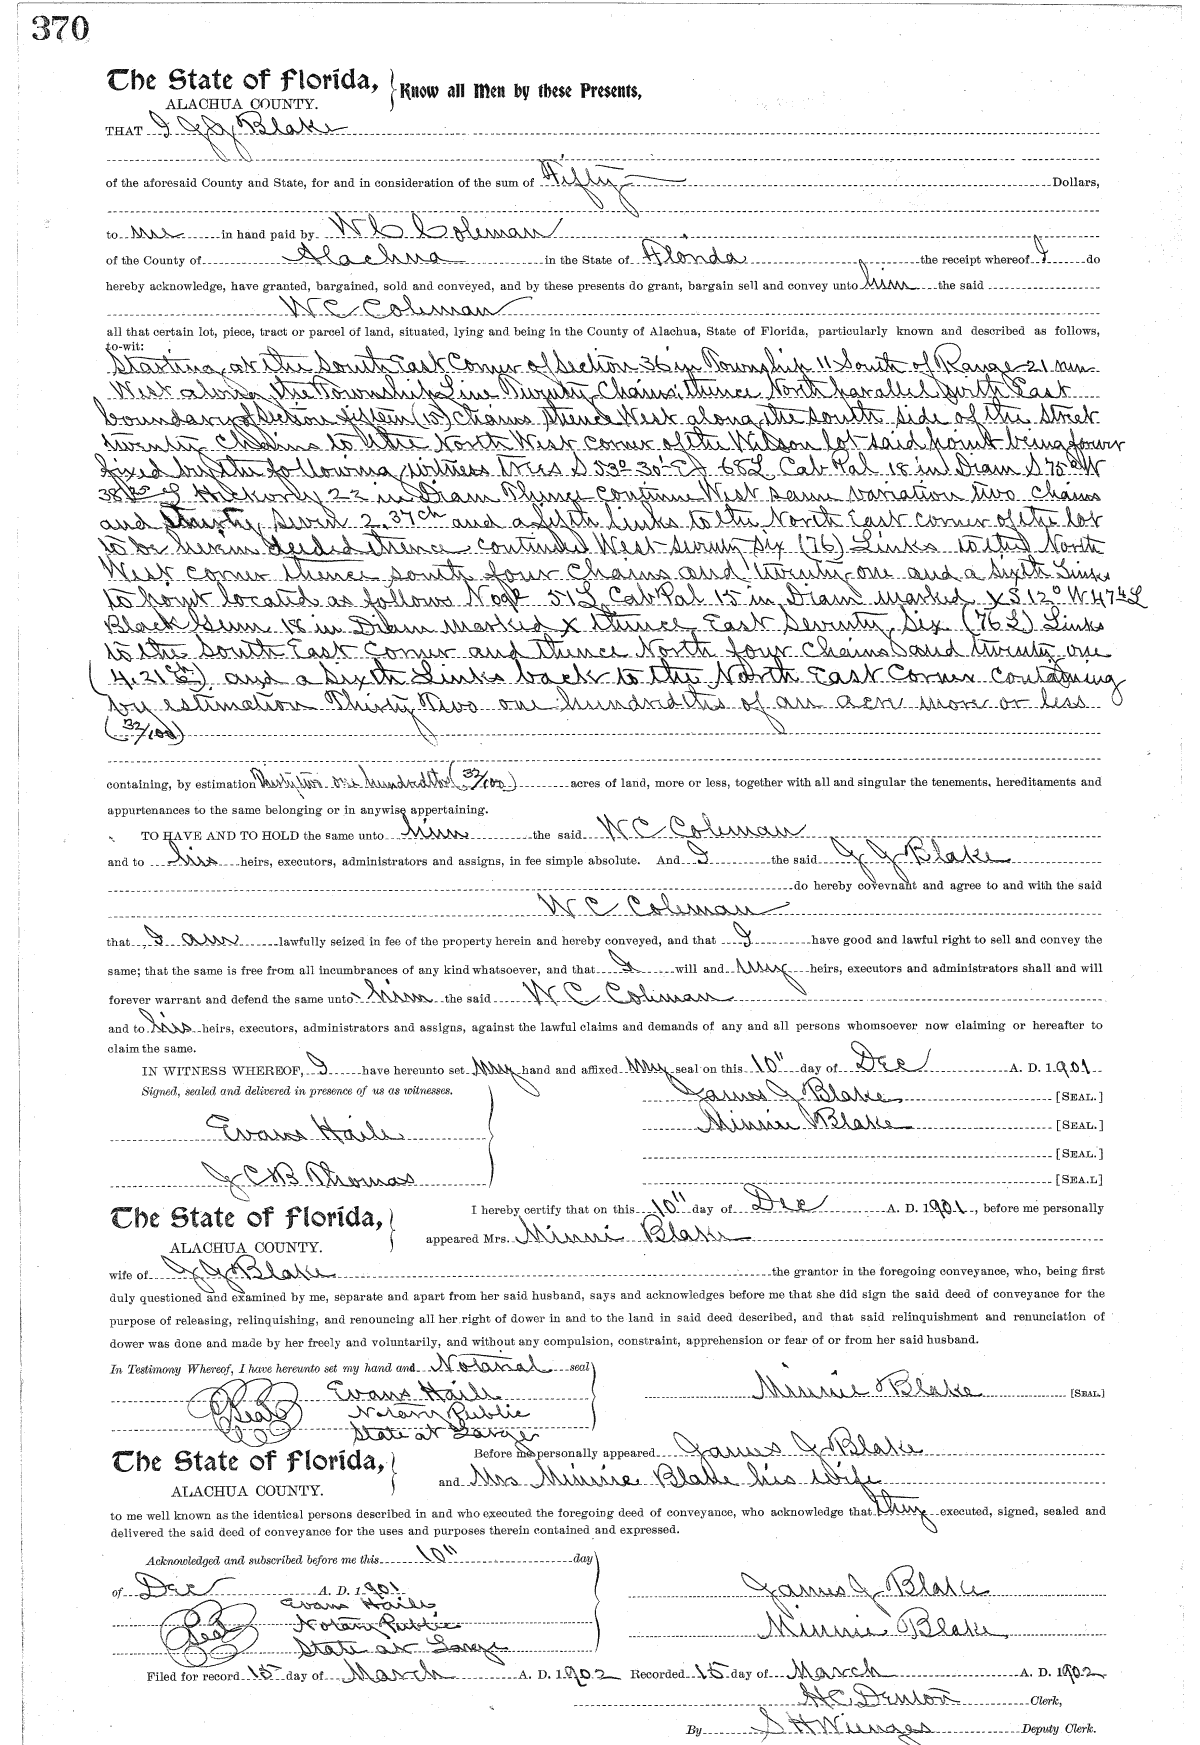 370
The State of Florida, Know all Men by these Presents,
ALACHUA COUNTY.
THAT I J J Blake
of the aforesaid County and State, for and in consideration of the sum of Fifty Dollars,
to me in hand paid by W C Coleman
of the County of Alachua in the State of Florida the receipt whereof I do
hereby acknowledge, have granted, bargained, sold and conveyed, and by these presents do grant, bargain sell and convey unto him the said
W C Coleman
all that certain lot, piece, tract or parcel of land, situated, lying and being in the County of Alachua, State of Florida, particularly known and described as follows,
to-wit:
Starting at the South East Corner of Section 36 in Township 11 South of Range 21 run
West along the Township Line Twenty Chains, thence North parallel with East
boundary of Section fifteen (15) Chains thence West along the South side of the Street
twenty chains to the North West corner of the Wilson lot said point being
fixed by the following witness trees S 53° 30' E 68 L Cab Pal 18 in Diam S 75° W
38 L Hickory 22 in Diam Thence continue West same variation two chains
and thirty seven 2.37 ch and a fifth links to the North East corner of the lot
to be herein deeded thence continued West seventy six (76) Links to the North
West corner thence south four Chains and twenty-one and a sixth Links
to point located as follows 51 L Cab Pal 15 in Diam marked X S 12° W 47 L
Black Gum 18 in Diam marked X thence East Seventy Six (76 L) Links
to the South East Corner and thence North four Chains and twenty one
(4.21) and a Sixth Links back to the North East Corner Containing
by estimation Thirty Two one hundredths of an acre more or less
(32/100)
containing, by estimation Thirty two one hundredths (32/100) acres of land, more or less, together with all and singular the tenements, hereditaments and
appurtenances to the same belonging or in anywise appertaining.
TO HAVE AND TO HOLD the same unto him the said W C Coleman
and to his heirs, executors, administrators and assigns, in fee simple absolute. And I the said J J Blake
do hereby covevnant and agree to and with the said
W C Coleman
that I am lawfully seized in fee of the property herein and hereby conveyed, and that I have good and lawful right to sell and convey the
same; that the same is free from all incumbrances of any kind whatsoever, and that I will and my heirs, executors and administrators shall and will
forever warrant and defend the same unto him the said W C Coleman
and to his heirs, executors, administrators and assigns, against the lawful claims and demands of any and all persons whomsoever now claiming or hereafter to
claim the same.
IN WITNESS WHEREOF, I have hereunto set my hand and affixed my seal on this 10" day of Dec A. D. 1901
Signed, sealed and delivered in presence of us as witnesses. James J Blake [SEAL.]
Evans Haile Minnie Blake [SEAL.]
[SEAL.]
J C B Thomas [SEA.L]
The State of Florida, I hereby certify that on this 10" day of Dec A. D. 1901, before me personally
ALACHUA COUNTY. appeared Mrs. Minni Blake
wife of J J Blake the grantor in the foregoing conveyance, who, being first
duly questioned and examined by me, separate and apart from her said husband, says and acknowledges before me that she did sign the said deed of conveyance for the
purpose of releasing, relinquishing, and renouncing all her right of dower in and to the land in said deed described, and that said relinquishment and renunciation of
dower was done and made by her freely and voluntarily, and without any compulsion, constraint, apprehension or fear of or from her said husband.
In Testimony Whereof, I have hereunto set my hand and Notarial seal
Seal Evans Haile Minnie Blake [SEAL.]
Notary Public
State at Large
The State of Florida, Before me personally appeared James J Blake
ALACHUA COUNTY. and Mrs Minnie Blake his wife
to me well known as the identical persons described in and who executed the foregoing deed of conveyance, who acknowledge that they executed, signed, sealed and
delivered the said deed of conveyance for the uses and purposes therein contained and expressed.
Acknowledged and subscribed before me this 10" day
of Dec A. D. 1901 James J Blake
Evans Haile
Seal Notary Public Minnie Blake
State at Large
Filed for record 15 day of March A. D. 1902 Recorded 15 day of March A. D. 1902
H C Denton Clerk,
By S H Wienges Deputy Clerk.